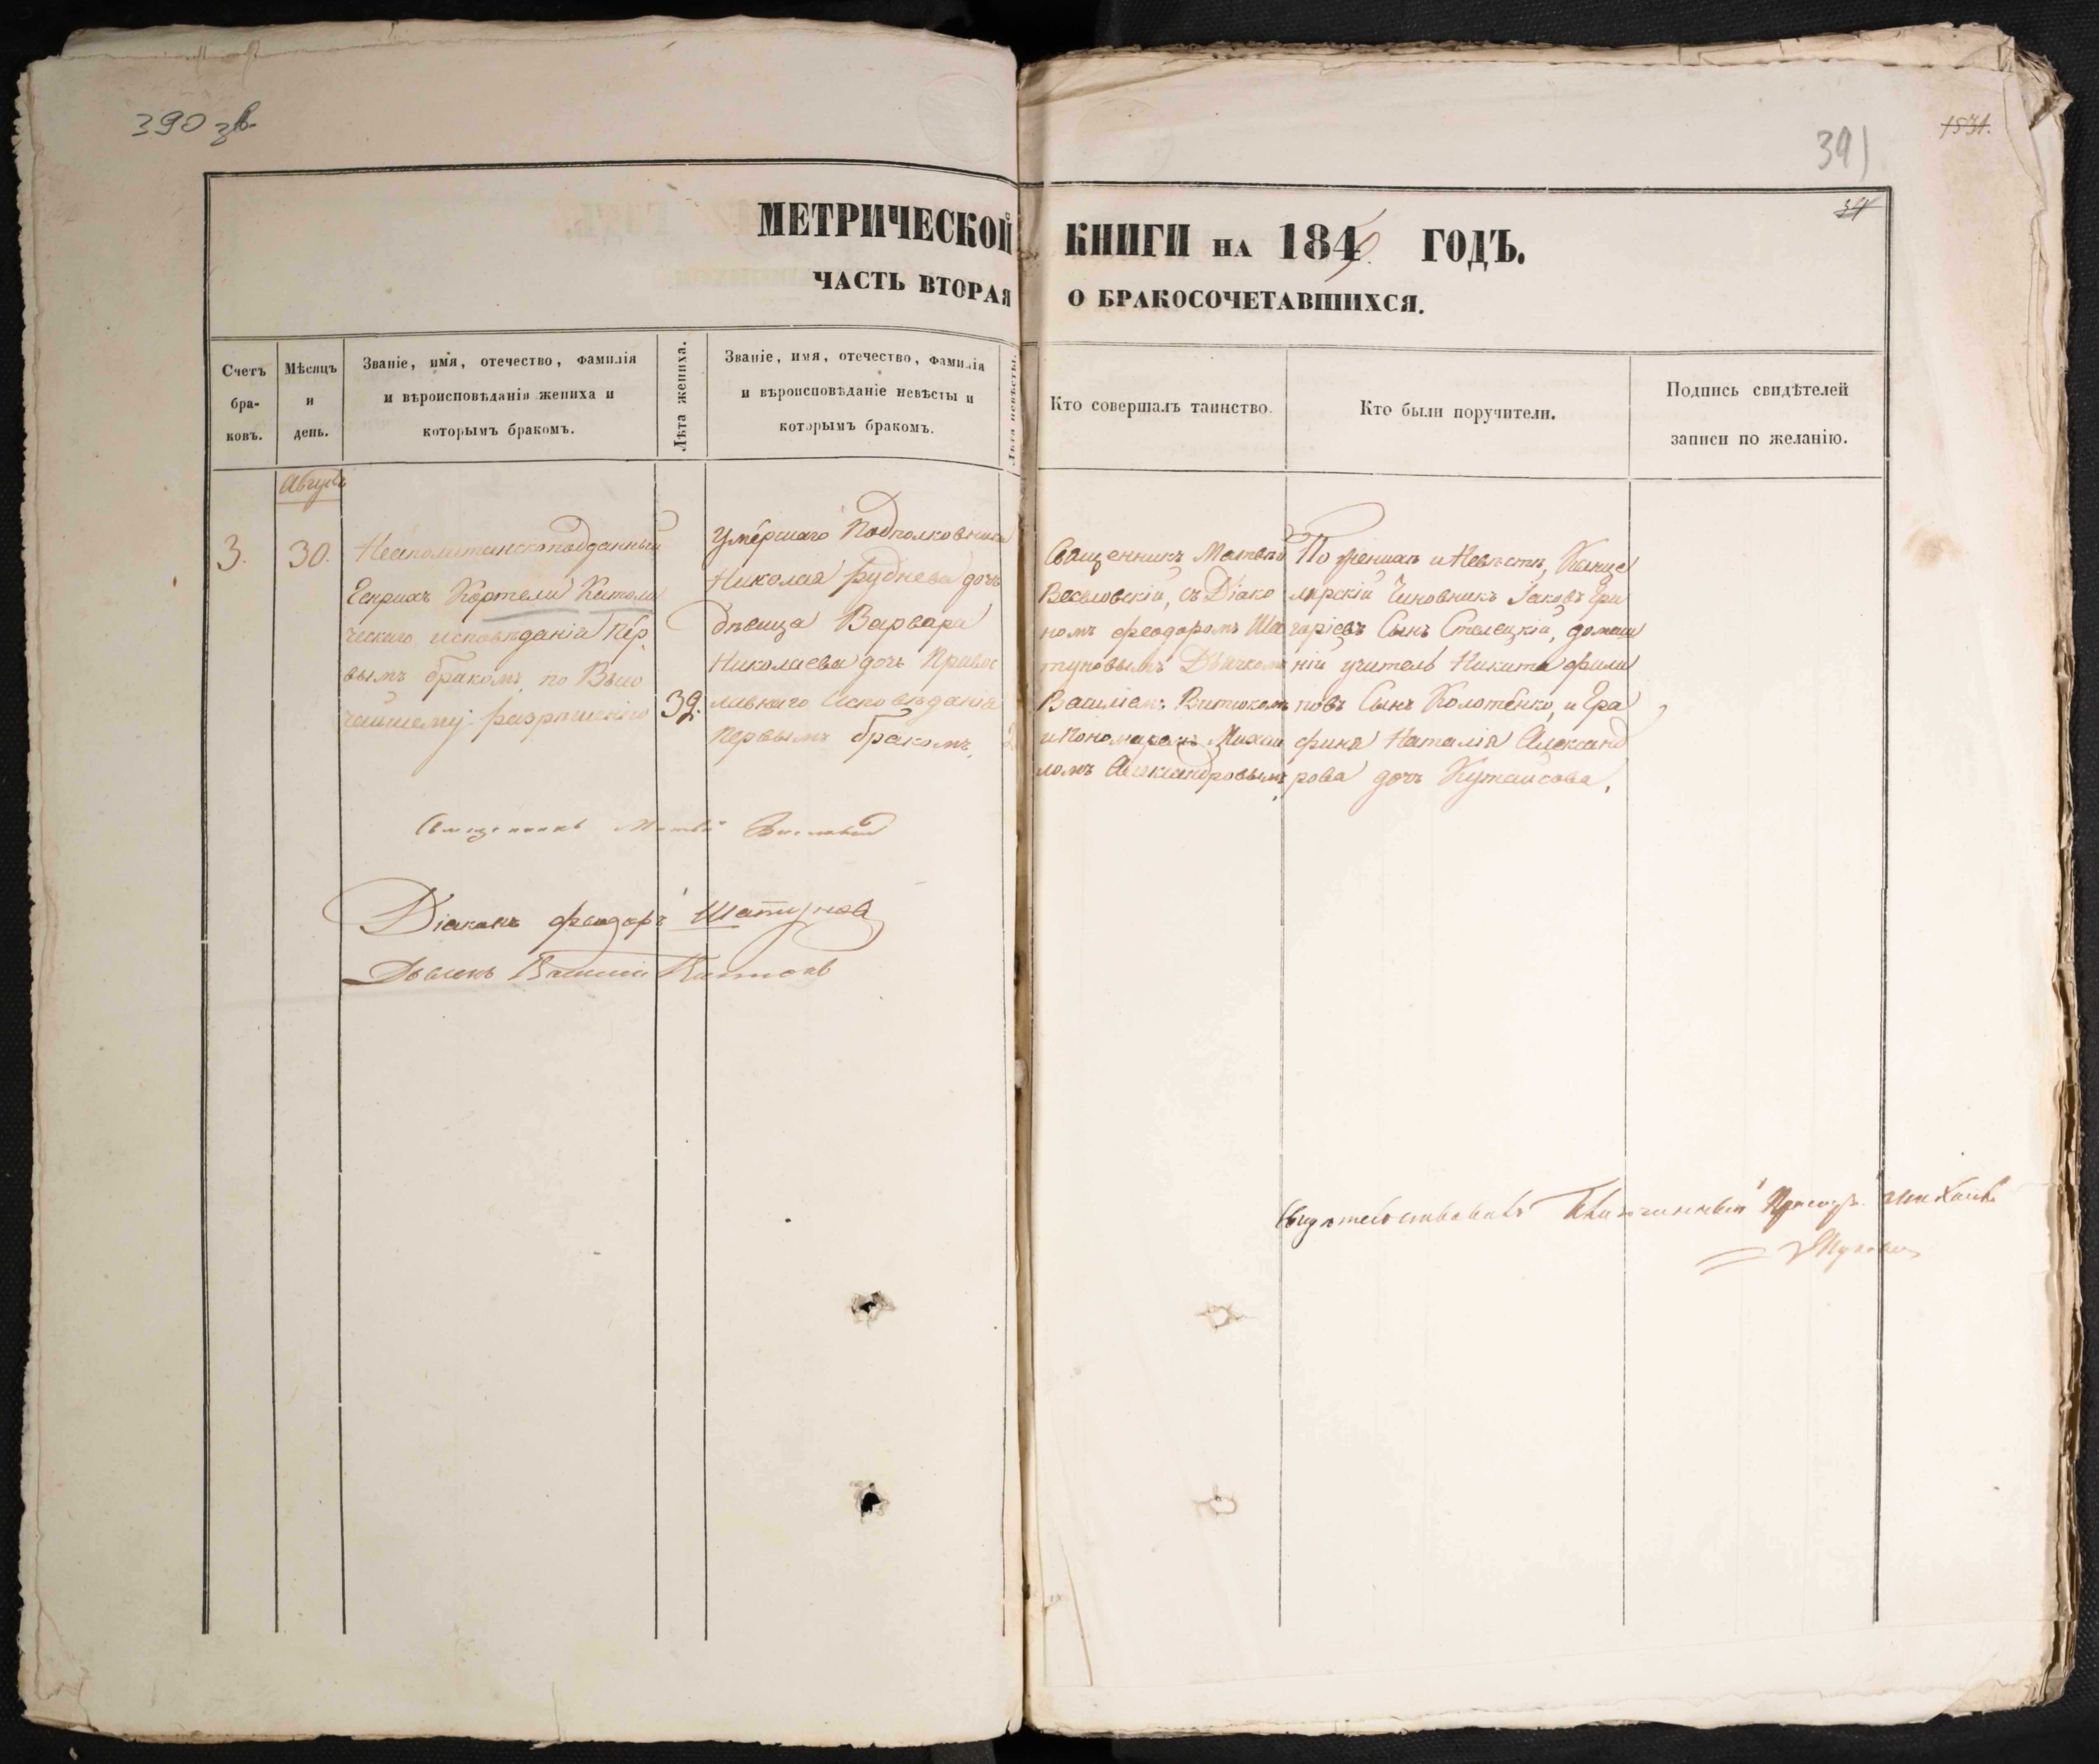 390 зв.
391
1531.
34
МЕТРИЧЕСКОЙ КНИГИ НА 184 ГОДЪ.
ЧАСТЬ ВТОРАЯ О БРАКОСОЧЕТАВШИХСЯ.
Счетъ
бра-
ковъ.
Мѣсяцъ
и
день.
Званіе, имя, отечество, фамилія
и вѣроисповѣданія жениха и
которымъ бракомъ.
Лѣта жениха.
Званіе, имя, отечество, фамилія
и вѣроисповѣданіе невѣсты и
которымъ бракомъ.
Лѣта невѣсты.
Кто совершалъ таинство.
Кто были поручители.
Подпись свидѣтелей
записи по желанію.
Августъ
3.
30.
Неаполитанскоподданный
Генрихъ Кортели Католи
ческаго исповѣданія пер
вымъ бракомъ, по Высо
чайшему разрѣшенію
39.
Умершаго Подполковника
Николая Руднева дочь
дѣвица Варвара
Николаева дочь Правос
лавнаго Исповѣданія
первымъ бракомъ,
Священникъ Матвѣй
Веселовскій, съ Діако
номъ Феодоромъ Ша
туновымъ Дьячкомъ
Василіемъ Витюкомъ
и Пономаремъ Михаи
ломъ Александровымъ,
По женихѣ и Невѣстѣ, Канце
лярскій Чиновникъ Іаковъ Гри
горіевъ Сынъ Стелецкій, домаш
ній учитель Никита Фили
повъ Сынъ Колотенко, и Гра
финя Наталія Александ
рова дочь Кутайсова,
Священникъ Матвѣй Веселовскій
Діаконъ Феодоръ Шатуновъ
Дьячекъ Василій Витюкъ
Свидѣтельствовалъ Благочинный Михаилъ